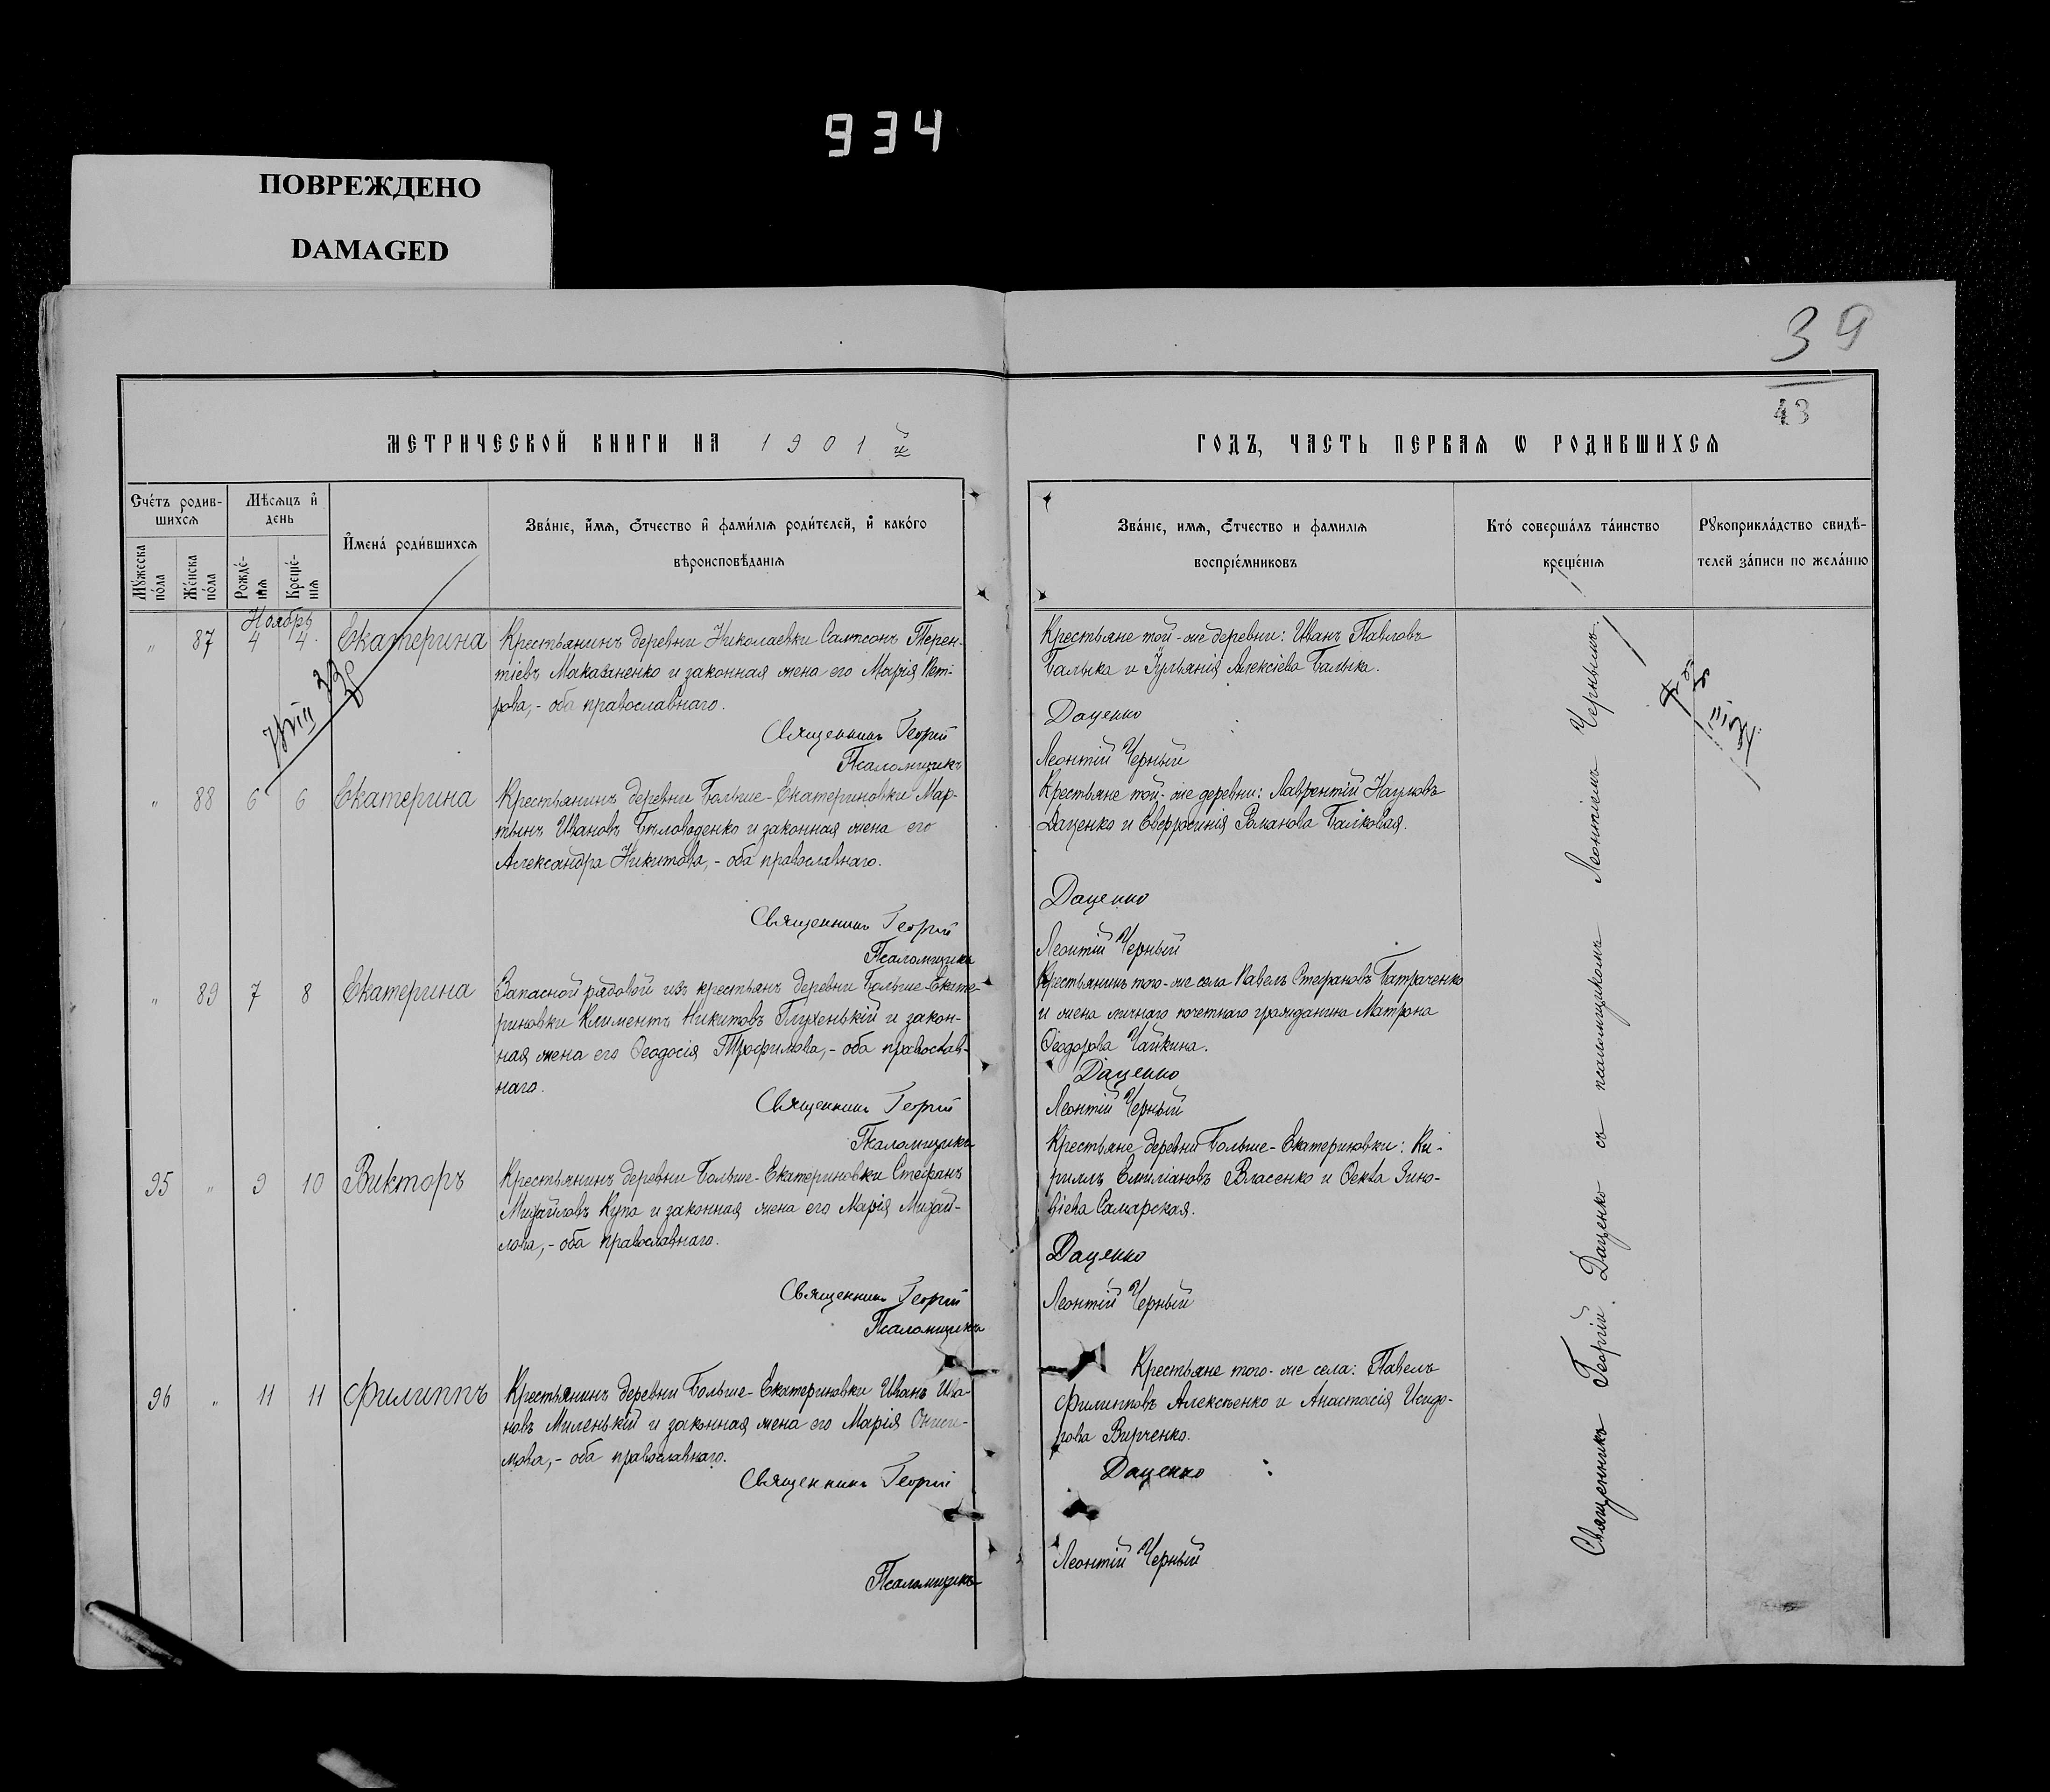 934
ПОВРЕЖДЕНО
DAMAGED
39
43
МЕТРИЧЕСКОЙ КНИГИ НА 1901й
ГОДЪ, ЧАСТЬ ПЕРВАЯ Ѡ РОДИВШИХСЯ
Счéтъ родив-
шихся
Мꙋ́жеска
пóла
Жéнска
пóла
Мѣсяцъ и҆
день
Рождé-
нїя
Крещé-
нїя
И҆менá роди́вшихся
Звáнїе, и҆́мя, ѻ҆́тчество и҆ фами́лїя роди́телей, и҆ какóго
вѣроисповѣ́данїя
Звáнїе, имя, ѻ҆́тчество и фамилїя
воспрїéмниковъ
Ктó совершáлъ тáинство
крещéнїя
Рꙋкоприклáдство свидѣ́-
телей зáписи по желáнїю
Ноябрь
" 87 4 4 Екатерина
Крестьянинъ деревни Николаевки Сампсонъ Терен-
тіевъ Макаваненко и законная жена его Марія Пет-
рова,- оба православнаго.
Священникъ Георгій
Псаломщикъ
Крестьяне той-же деревни: Иванъ Павловъ
Балыка и Іуліанія Алексіева Балыка.
Даценко
Леонтій Черный
" 88 6 6 Екатерина
Крестьянинъ деревни Больше-Екатериновки Мар-
тынъ Ивановъ Бѣловоденко и законная жена его
Александра Никитова,- оба православнаго.
Священникъ Георгій
Псаломщикъ
Крестьяне той-же деревни: Лаврентій Наумовъ
Даценко и Евфросинія Романова Балковая.
Даценко
Леонтій Черный
" 89 7 8 Екатерина
Запасной рядовой изъ крестьянъ деревни Больше-Екате-
риновки Климентъ Никитовъ Глухенькій и закон-
ная жена его Ѳеодосія Трофимова,- оба православ-
наго.
Священникъ Георгій
Псаломщикъ
Крестьянинъ того-же села Павелъ Стефановъ Батраченко
и жена личнаго почетнаго гражданина Матрона
Ѳеодорова Чайкина.
Даценко
Леонтій Черный
95 " 9 10 Викторъ
Крестьянинъ деревни Больше-Екатериновки Стефанъ
Михайловъ Купа и законная жена его Марія Михай-
лова,- оба православнаго.
Священникъ Георгій
Псаломщикъ
Крестьяне деревни Больше-Екатериновки: Ки-
риллъ Емиліановъ Власенко и Ѳекла Зино-
віева Самарская.
Даценко
Леонтій Черный
96 " 11 11 Филиппъ
Крестьянинъ деревни Больше-Екатериновки Иванъ Ива-
новъ Миленькій и законная жена его МаріяОниси-
мова,- оба православнаго.
Священникъ Георгій
Псаломщикъ
Крестьяне того-же села: Павелъ
Филипповъ Алексѣенко и Анастасія Исидо-
рова Вирченко.
Даценко
Леонтій Черный
Священникъ Георгій Даценко съ псаломщикомъ Леонтіемъ Чернымъ.